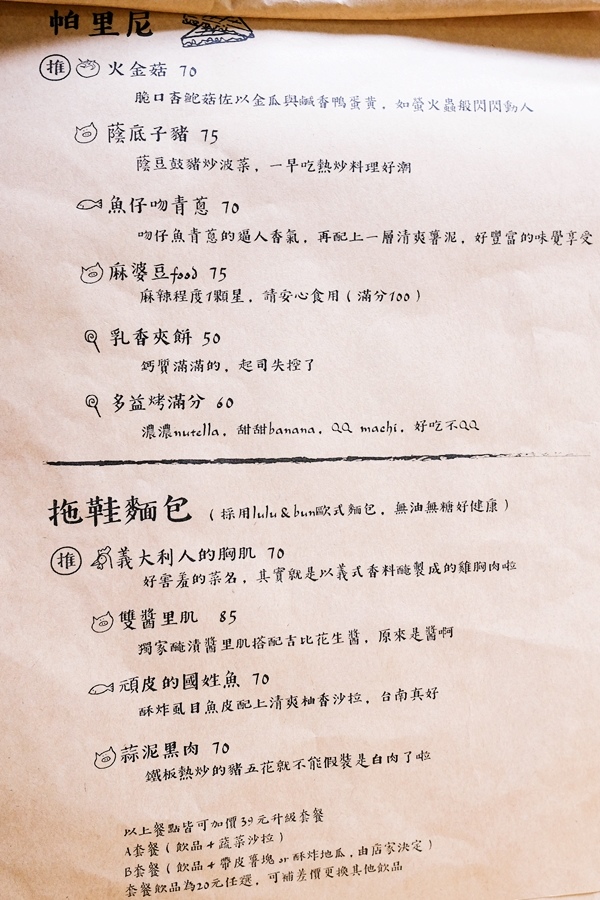 帕里尼
推 火金菇 70
脆口杏鮑菇佐以金瓜與鹹香鴨蛋黃，如螢火蟲般閃閃動人
蔭底子豬 75
蔭豆鼓豬炒波菜，一早吃熱炒料理好潮
魚仔吻青蔥 70
吻仔魚青蔥的逼人香氣，再配上一層清爽薯泥，好豐富的味覺享受
麻婆豆food 75
麻辣程度1顆星，請安心食用（滿分100）
乳香夾餅 50
鈣質滿滿的，起司失控了
多益烤滿分 60
濃濃nutella，甜甜banana，QQ machi，好吃不QQ
拖鞋麵包（採用lulu&bun歐式麵包，無油無糖好健康）
推 義大利人的胸肌 70
好害羞的菜名，其實就是以義式香料醃製成的雞胸肉啦
雙醬里肌 85
獨家醃漬醬里肌搭配吉比花生醬，原來是醬啊
頑皮的國姓魚 70
酥炸虱目魚皮配上清爽柚香沙拉，台南真好
蒜泥黑肉 70
鐵板熱炒的豬五花就不能假裝是白肉了啦
以上餐點皆可加價39元升級套餐
A套餐（飲品+蔬菜沙拉）
B套餐（飲品+帶皮薯塊or酥炸地瓜，由店家決定）
套餐飲品為20元任選，可補差價更換其他飲品